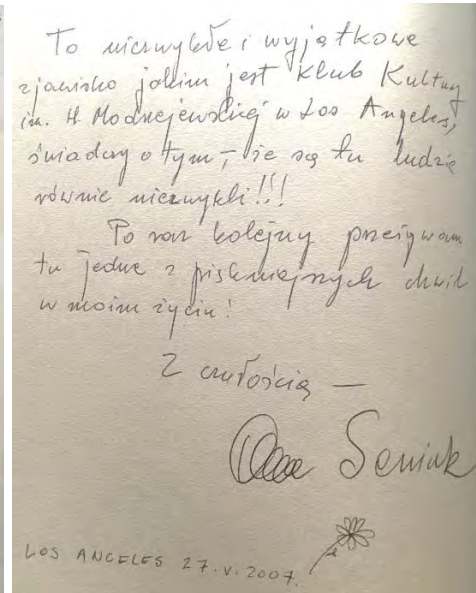 To niezwykłe i wyjątkowe
zjawisko jakim jest Klub Kultury
im. H. Modrzejewskiej w Los Angeles,
świadczy o tym, że są tu ludzie
równie niezwykli!!!
Po raz kolejny przeżywam
tu jedne z piękniejszych chwil
w moim życiu!
Z czułością —
Anna Seniuk
LOS ANGELES 27.V.2007.